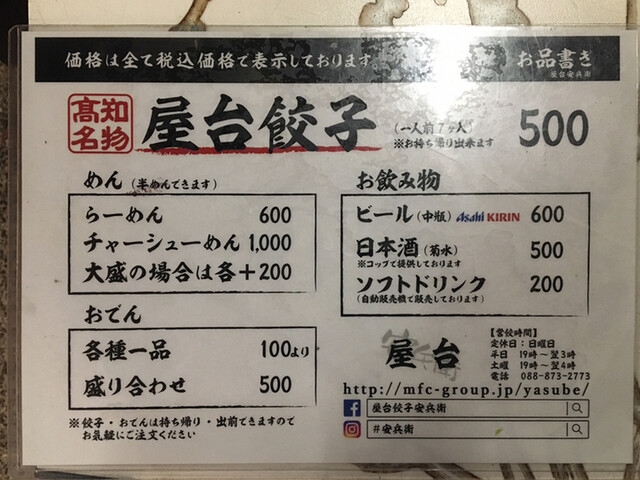 価格は全て税込価格で表示しております
お品書き
屋台安兵衛
高知名物
屋台餃子
(一人前7ヶ入)
※お持ち帰り出来ます
500
めん(半めんできます)
らーめん 600
チャーシューめん 1,000
大盛の場合は各+200
おでん
各種一品 100より
盛り合わせ 500
※餃子・おでんは持ち帰り・出前できますので
お気軽にご注文ください
お飲み物
ビール(中瓶) Asahi KIRIN 600
日本酒(菊水) 500
※コップで提供しております
ソフトドリンク 200
(自動販売機で販売しております)
安兵衛
屋台
【営餃時間】
定休日:日曜日
平日 19時〜翌3時
土曜 19時〜翌4時
電話 088-873-2773
http://mfc-group.jp/yasube/
屋台餃子安兵衛
#安兵衛